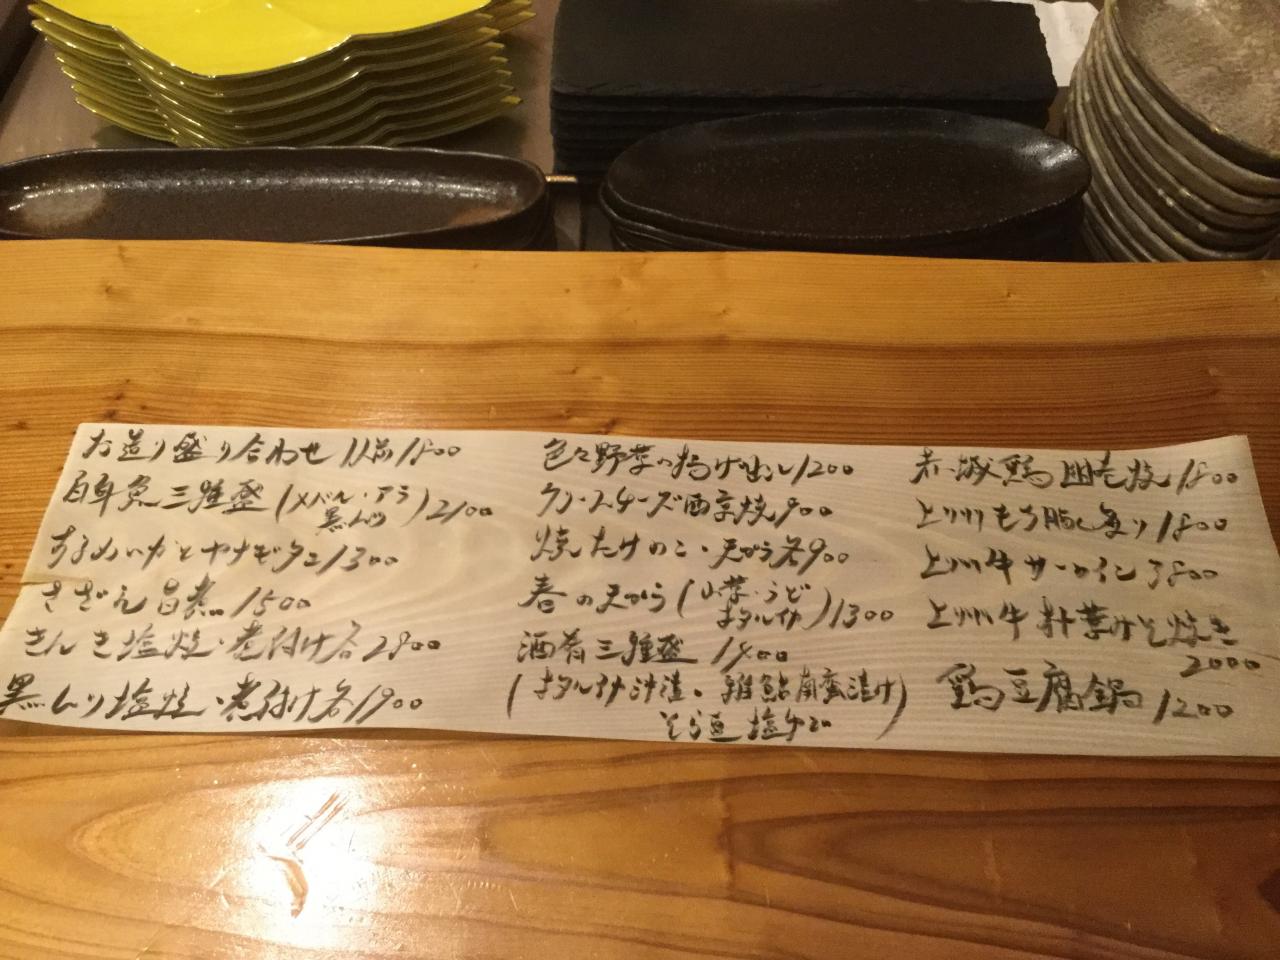 お造り盛り合わせ 1人前1800
白身魚三種盛(メバル・アラ
黒ムツ)2100
するめいかとヤナギタコ1300
さざえ旨煮1500
きんき塩焼・煮付け各2800
黒ムツ塩焼・煮付け各1900
色々野菜の揚げ出し1200
クリームチーズ西京焼900
焼たけのこ・天ぷら各900
春の天ぷら(山菜・うど
ホタルイカ)1300
酒肴三種盛 1400
(ホタルイカ沖漬・稚鮎南蛮漬け)
そら豆塩ゆで
赤城鶏 焼1800
上州もち豚 1800
上州牛サーロイン3800
上州牛朴葉みそ焼き
2000
鶏豆腐鍋1200